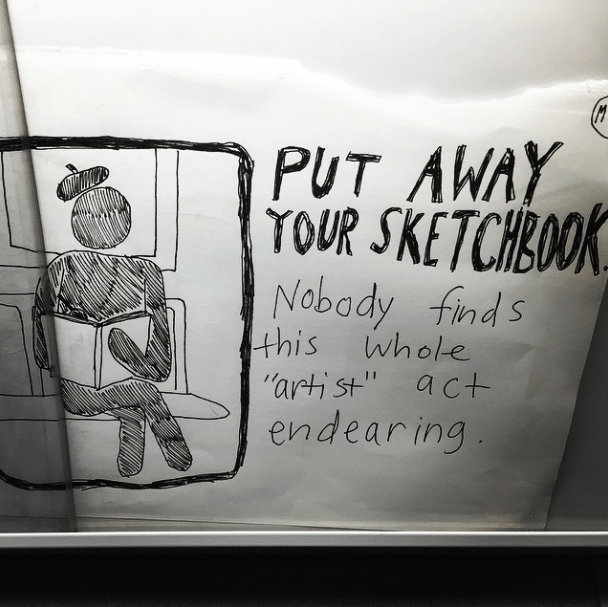 M
PUT AWAY
YOUR SKETCHBOOK.
Nobody finds
this whole
"artist" act
endearing.